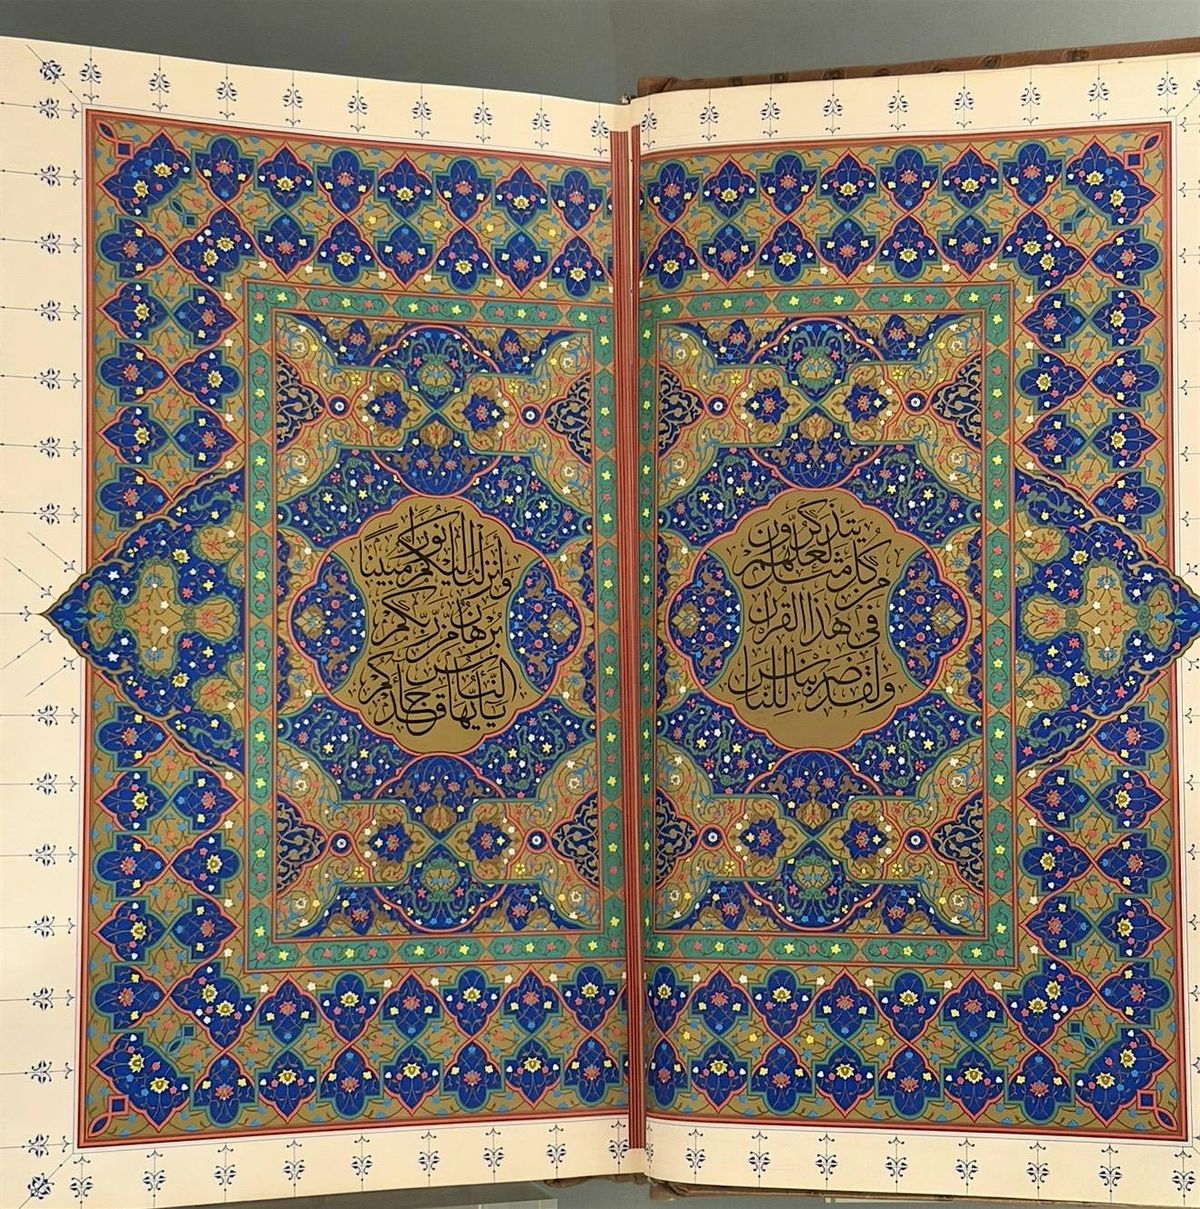 ولقد ضربنا للناس
في هذا القران
من كل مثل لعلهم
يتذكرون
يا أيها الناس قد جاءكم
برهان من ربكم
وأنزلنا إليكم نورا مبينا